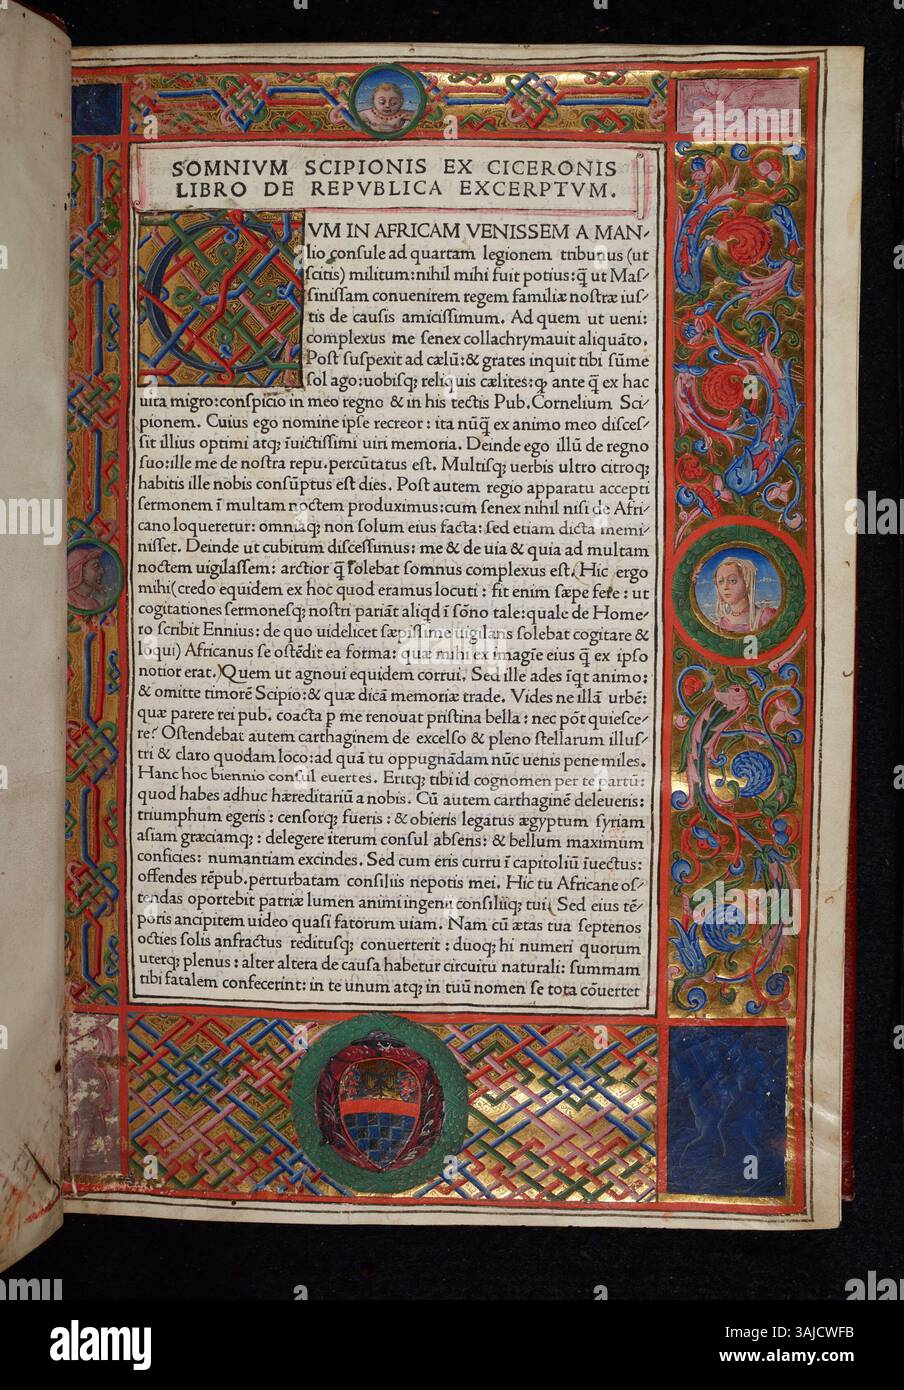 SOMNIVM SCIPIONIS EX CICERONIS
LIBRO DE REPVBLICA EXCERPTVM.
CVM IN AFRICAM VENISSEM A MAN-
lio consule ad quartam legionem tribunus (ut
scitis) militum: nihil mihi fuit potius: q̄ ut Mas-
sinissam conuenirem regem familiæ nostræ ius-
tis de causis amicissimum. Ad quem ut ueni:
complexus me senex collachrymauit aliquāto.
Post suspexit ad cælū: & grates inquit tibi sūme
sol ago: uobisq; reliquis cælites: ꝙ ante q̄ ex hac
uita migro: conspicio in meo regno & in his tectis Pub. Cornelium Sci-
pionem. Cuius ego nomine ipse recreor: ita nūq̄ ex animo meo disces-
sit illius optimi atq; īuictissimi uiri memoria. Deinde ego illū de regno
suo: ille me de nostra repu. percūtatus est. Multisq; uerbis ultro citroq;
habitis ille nobis consūptus est dies. Post autem regio apparatu accepti
sermonem ī multam noctem produximus: cum senex nihil nisi de Afri-
cano loqueretur: omniaq; non solum eius facta: sed etiam dicta memi-
nisset. Deinde ut cubitum discessimus: me & de uia & quia ad multam
noctem uigilassem: arctior q̄ solebat somnus complexus est. (Hic ergo
mihi (credo equidem ex hoc quod eramus locuti: fit enim sæpe fere: ut
cogitationes sermonesq; nostri pariāt aliqd ī sōno tale: quale de Home-
ro scribit Ennius: de quo uidelicet sæpissime uigilans solebat cogitare &
loqui) Africanus se ostēdit ea forma: quæ mihi ex imagīe eius q̄ ex ipso
notior erat.) Quem ut agnoui equidem corrui. Sed ille ades īqt animo:
& omitte timorē Scipio: & quæ dicā memoriæ trade. Vides ne illā urbē:
quæ parere rei pub. coacta p me renouat pristina bella: nec pōt quiesce-
re? Ostendebat autem carthaginem de excelso & pleno stellarum illus-
tri & claro quodam loco: ad quā tu oppugnādam nūc uenis pene miles.
Hanc hoc biennio consul euertes. Eritq; tibi id cognomen per te partū:
quod habes adhuc hæreditariū a nobis. Cū autem carthaginē deleueris:
triumphum egeris: censorq; fueris: & obieris legatus ægyptum syriam
asiam græciamq;: delegere iterum consul absens: & bellum maximum
conficies: numantiam excindes. Sed cum eris curru ī capitoliū īuectus:
offendes rēpub. perturbatam consiliis nepotis mei. Hic tu Africane os-
tendas oportebit patriæ lumen animi ingenii consiliiq; tui. Sed eius tē-
poris ancipitem uideo quasi fatorum uiam. Nam cū ætas tua septenos
octies solis anfractus reditusq; conuerterit: duoq; hi numeri quorum
uterq; plenus: alter altera de causa habetur circuitu naturali: summam
tibi fatalem confecerint: in te unum atq; in tuū nomen se tota cōuertet
alamy
Image ID: 3AJCWFB
www.alamy.com